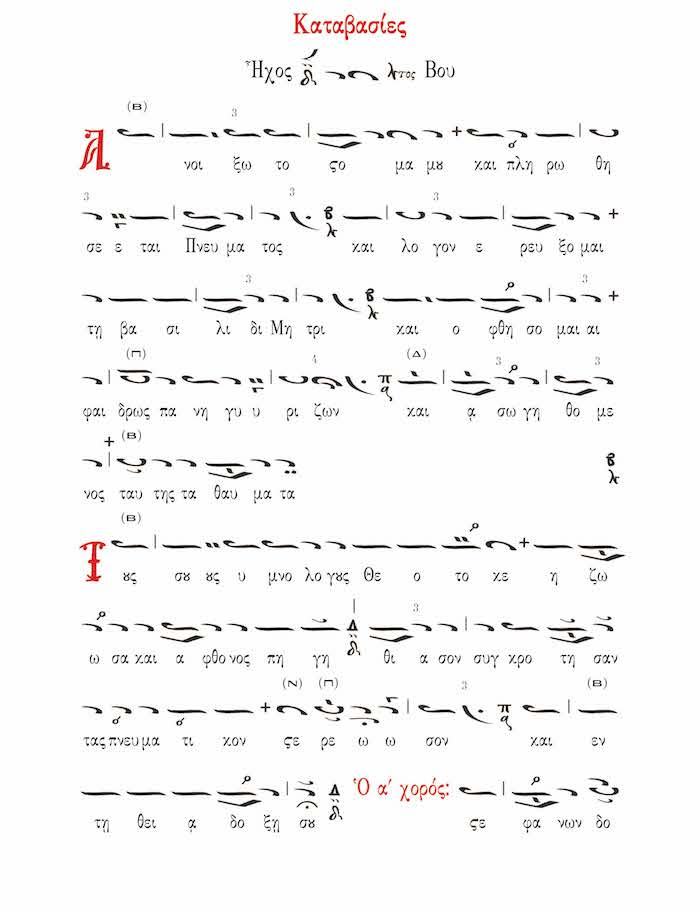 Καταβασίες
Ἦχος λ̓τος Βου
(Β) 3
Α νοι ξω το ϛο μα μȣ και πλη ρω θη
3 3 3
σε ε ται Πνευ μα τος και λο γον ε ρευ ξο μαι
3 3
τη βα σι λι δι Μη τρι και ο φθη σο μαι αι
(Π) 4 (Δ) 3 3
φαι δρως πα νη γυ υ ρι ζων και ᾳ σω γη θο με
(Β)
νος ταυ της τα θαυ μα τα
(Β)
Τ ȣς σȣ ȣς υ μνο λο γȣς Θε ο το κε η ζω
3
ω σα και α φθο νος πη γη θι α σον συγ κρο τη σαν
(Ν) (Π) 3 (Β)
τας πνευ μα τι κον ϛε ρε ω ω σον και εν
Ὁ α΄ χορός:
τη θει ᾳ δο ξῃ σȣ ϛε φα νων δο